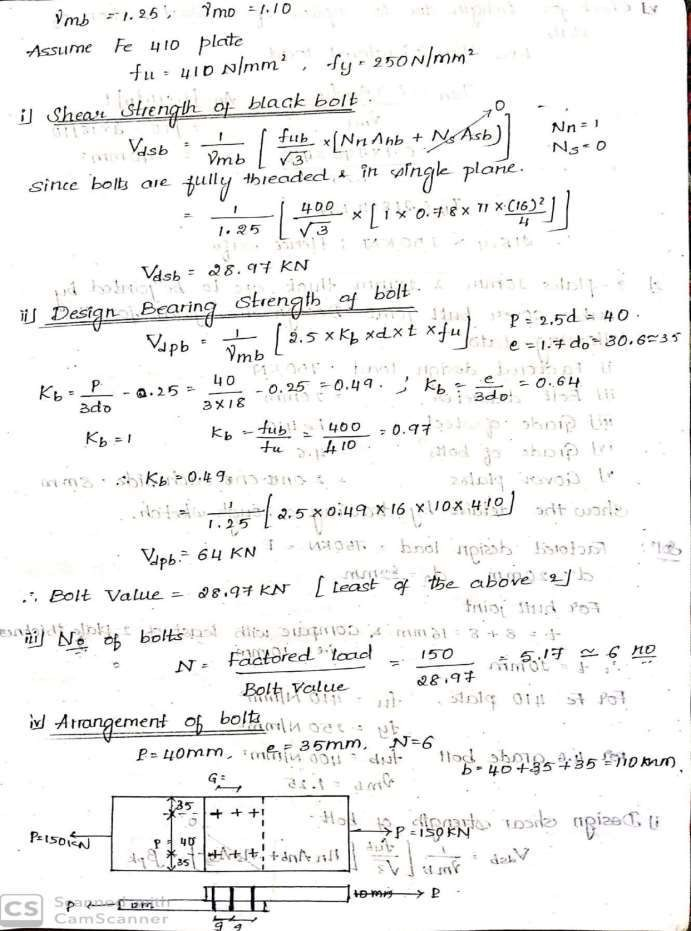 γmb = 1.25, γmo = 1.10
Assume Fe 410 plate
fu = 410 N/mm², fy = 250 N/mm²
i] Shear Strength of black bolt.
Vdsb = 1/γmb [ fub/√3 × (Nn Anb + Ns Asb) ] → 0 Nn = 1
Ns = 0
Since bolts are fully threaded & in single plane.
= 1/1.25 [ 400/√3 × [ 1 × 0.78 × π × (16)²/4 ] ]
Vdsb = 28.97 KN
ii] Design Bearing Strength of bolt
Vdpb = 1/γmb [ 2.5 × Kb × d × t × fu ] P = 2.5d = 40.
e = 1.7 do = 30.6 ≈ 35
Kb = P/3do - 0.25 = 40/3×18 - 0.25 = 0.49. ; Kb = e/3do = 0.64
Kb = 1 Kb = fub/fu = 400/410 = 0.97
∴ Kb = 0.49
= 1/1.25 [ 2.5 × 0.49 × 16 × 10 × 410 ]
Vdpb = 64 KN
∴ Bolt Value = 28.97 KN [ Least of the above 2 ]
iii] No of bolts
N = Factored load/Bolt Value = 150/28.97 = 5.17 ≈ 6 no
iv] Arrangement of bolts
P = 40mm, e = 35mm, N=6
b = 40+35+35 = 110 mm.
G=
35
+ + +
P=150KN P = 40 P = 150KN
35 + + +
P 10mm 10mm P
g g
CS Scanned with
CamScanner